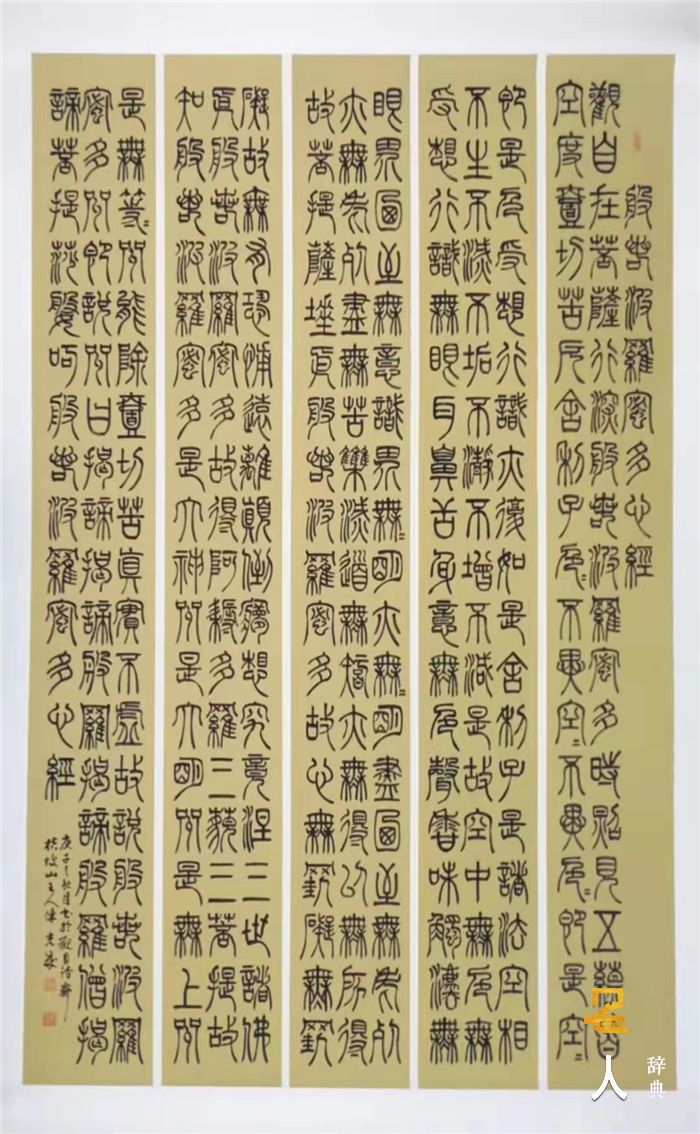 般若波羅蜜多心經
觀自在菩薩行深般若波羅蜜多時照見五蘊皆
空度壹切苦厄舍利子色=不異空=不異色=即是空=
即是色受想行識亦復如是舍利子是諸法空相
不生不滅不垢不淨不增不減是故空中無色無
受想行識無眼耳鼻舌身意無色聲香味觸法無
眼界乃至無意識界無=明亦無=明盡乃至無老死
亦無老死盡無苦集滅道無智亦無得以無所得
故菩提薩埵依般若波羅蜜多故心無罣礙無罣
礙故無有恐怖遠離顛倒夢想究竟涅三世諸佛
依般若波羅蜜多故得阿耨多羅三藐三菩提故
知般若波羅蜜多是大神咒是大明咒是無上咒
是無等=咒能除壹切苦真實不虛故說般若波羅
蜜多咒即說咒曰揭諦揭諦般羅揭諦般羅僧揭
諦菩提莎婆呵般若波羅蜜多心經
庚子之秋月書於
山主人陳
名人
辞典